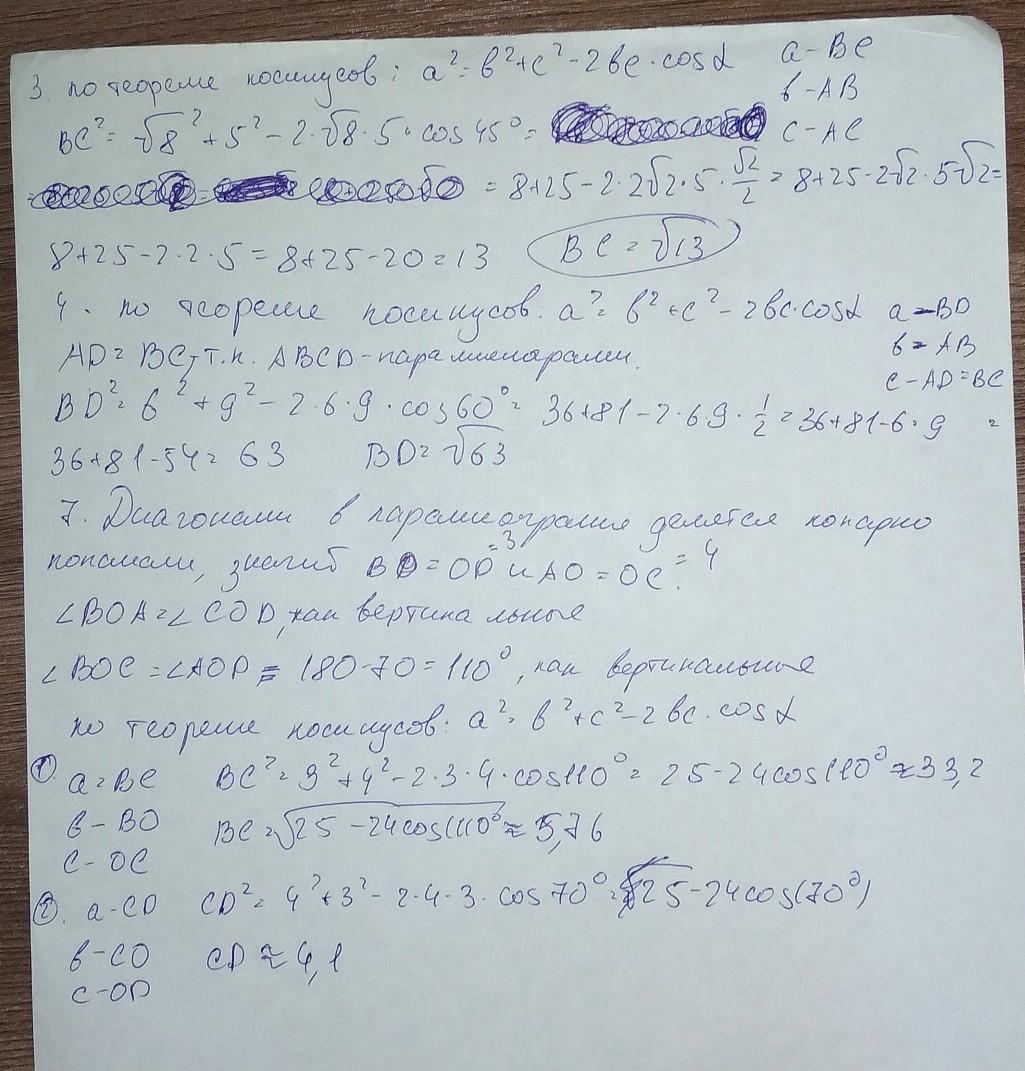 3. по теореме косинусов: a² = b² + c² - 2bc · cosα a - BC
b - AB
BC² = √8² + 5² - 2 · √8 · 5 · cos 45° = c - AC
= 8 + 25 - 2 · 2√2 · 5 · √2/2 = 8 + 25 - 2√2 · 5√2 =
8 + 25 - 2 · 2 · 5 = 8 + 25 - 20 = 13 BC = √13
4. по теореме косинусов: a² = b² + c² - 2bc · cosα a - BD
b = AB
AD = BC, т.к. ABCD - параллелограмм.
c - AD = BC
BD² = 6² + 9² - 2 · 6 · 9 · cos 60° = 36 + 81 - 2 · 6 · 9 · 1/2 = 36 + 81 - 6 · 9 =
36 + 81 - 54 = 63 BD = √63
7. Диагонали в параллелограмме делятся попарно
пополам, значит BO = OD = 3 и AO = OC = 4
∠BOA = ∠COD, как вертикальные
∠BOC = ∠AOD = 180 - 70 = 110°, как вертикальные
по теореме косинусов: a² = b² + c² - 2bc · cosα
① a = BC BC² = 3² + 4² - 2 · 3 · 4 · cos 110° = 25 - 24cos(110° ≈ 33,2
b - BO BC = √25 - 24cos(110° ≈ 5,76
c - OC
②. a - CD CD² = 4² + 3² - 2 · 4 · 3 · cos 70° = 25 - 24cos(70°)
b - CO CD ≈ 4,1
c - OD